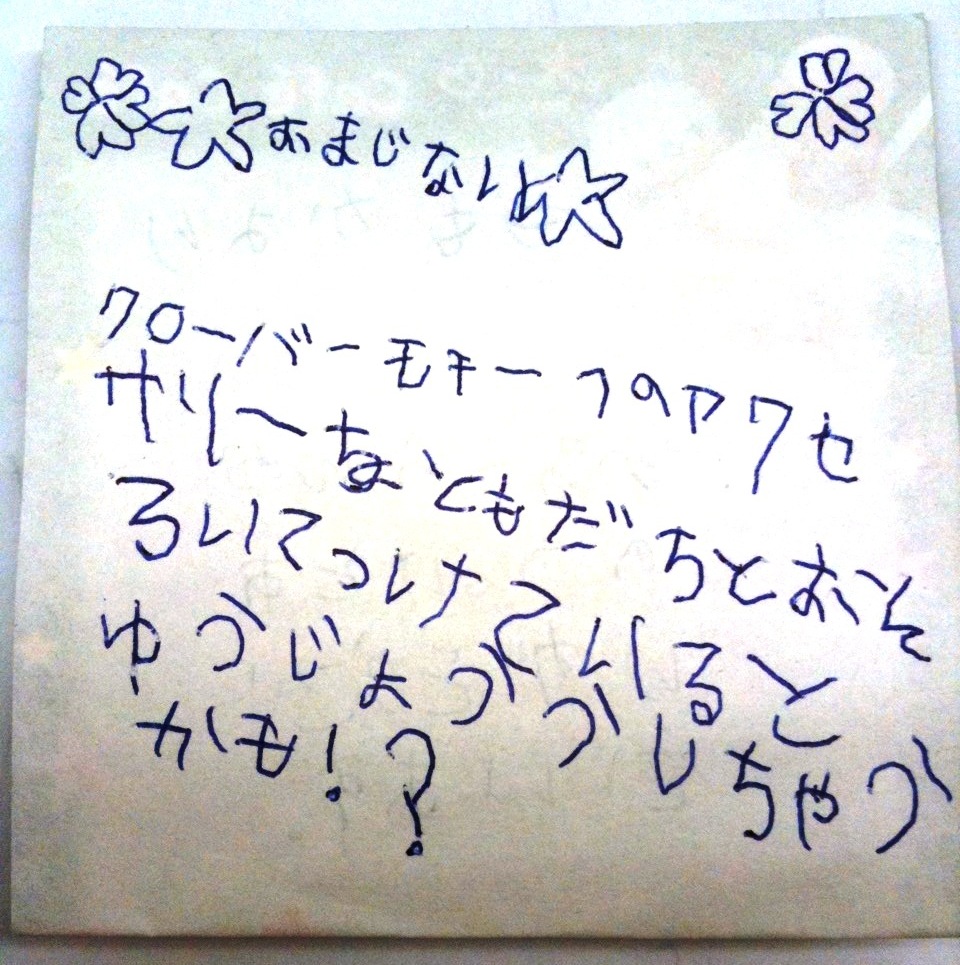 おまじない
クローバーモチーフのアクセ
サリーをともだちとおそ
ろいてつけていると
ゆうじょう しちゃう
かも!?